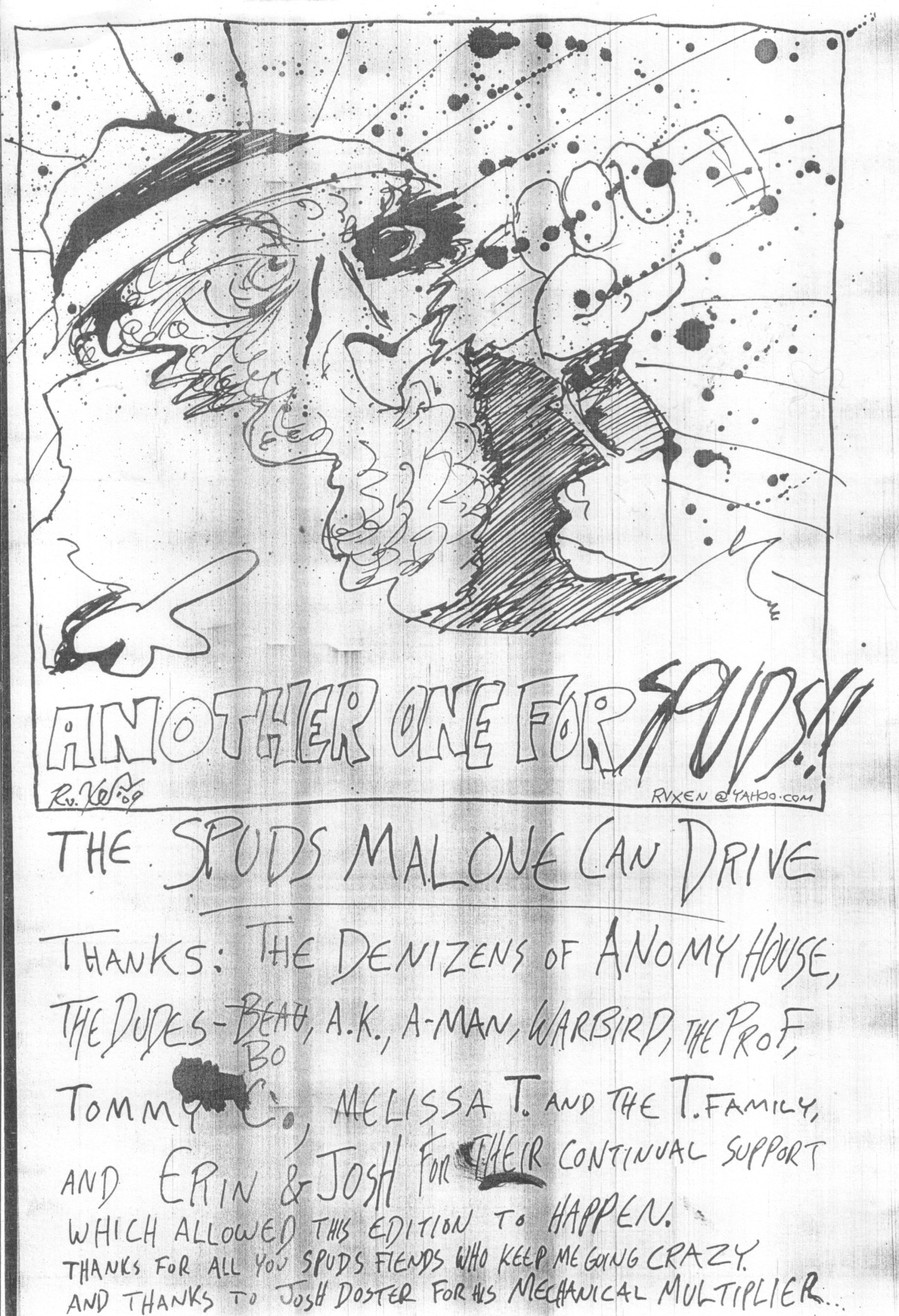 ANOTHER ONE FOR SPUDS!!
RV. XEN '09
RVXEN @YAHOO.COM
THE SPUDS MALONE CAN DRIVE
THANKS: THE DENIZENS OF ANOMY HOUSE,
THE DUDES - BEAU, A.K., A-MAN, WARBIRD, THE PROF,
BO
TOMMY C., MELISSA T. AND THE T. FAMILY,
AND ERIN & JOSH FOR THEIR CONTINUAL SUPPORT
WHICH ALLOWED THIS EDITION TO HAPPEN.
THANKS FOR ALL YOU SPUDS FIENDS WHO KEEP ME GOING CRAZY.
AND THANKS TO JOSH DOSTER FOR HIS MECHANICAL MULTIPLIER...